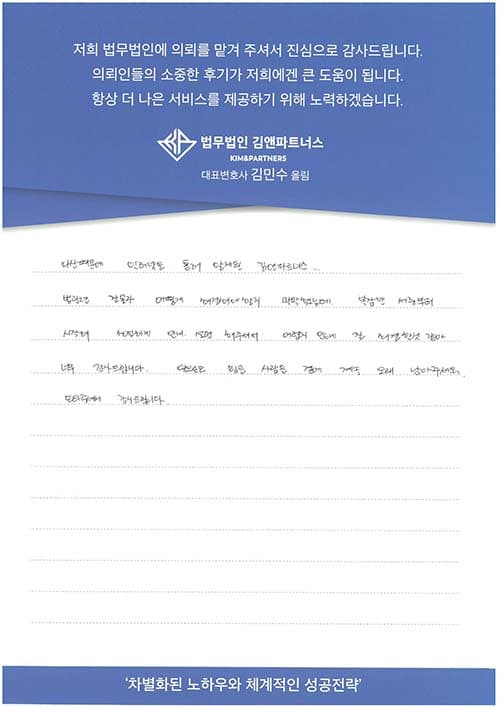 저희 법무법인에 의뢰를 맡겨 주셔서 진심으로 감사드립니다.
의뢰인들의 소중한 후기가 저희에겐 큰 도움이 됩니다.
항상 더 나은 서비스를 제공하기 위해 노력하겠습니다.
법무법인 김앤파트너스
KIM&PARTNERS
대표변호사 김민수 올림
인터넷을 통해 알게된 김앤파트너스...
어떻게 막막했는데, 부터
시작해 친절하게 안내. 설명 해주셔서 어렵지 않게 잘 해결한것 같아
너무 감사드립니다. 앞으로도 힘든 사람들 곁에 계속 오래 남아주세요.
감사드립니다.
'차별화된 노하우와 체계적인 성공전략'